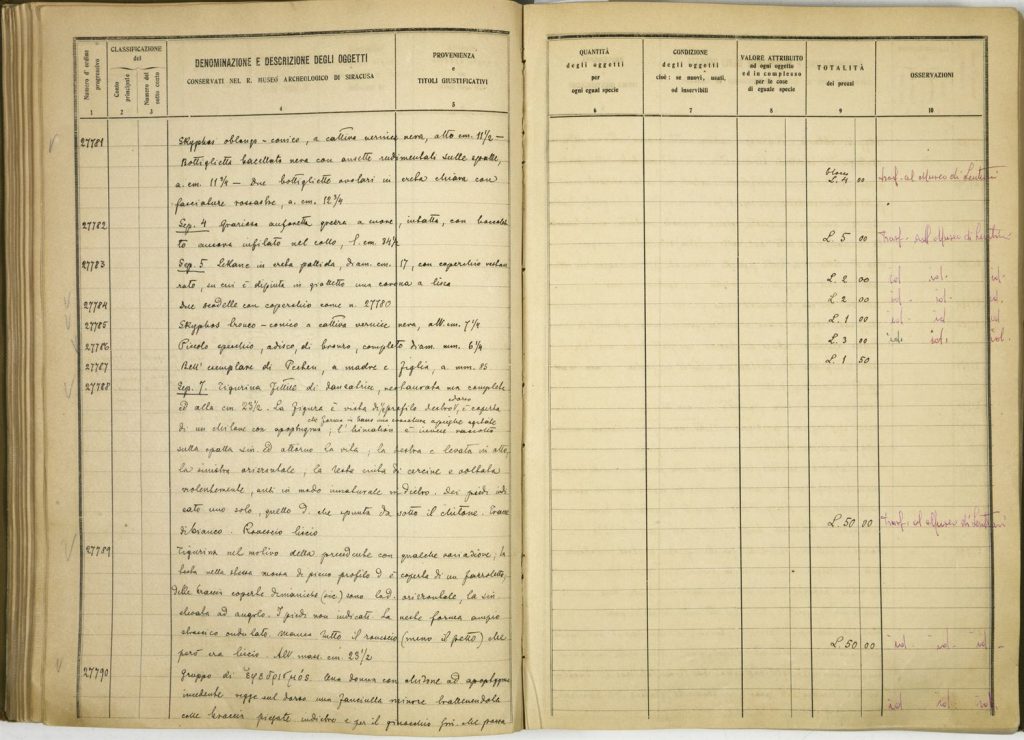 Numero d'ordine progressivo
CLASSIFICAZIONE del
Conto principale
Numero del sotto conto
DENOMINAZIONE E DESCRIZIONE DEGLI OGGETTI
CONSERVATI NEL R. MUSEO ARCHEOLOGICO DI SIRACUSA
PROVENIENZA
e
TITOLI GIUSTIFICATIVI
1 2 3 4 5
27781 Skyphos oblongo-conico, a cattiva vernice nera, alto cm. 11 1/2 —
Bottiglietta baccellata nera con ansette rudimentali sulle spalle,
a. cm. 11 3/4 — Due bottigliette ovolari in creta chiara con
fasciature rossastre, a. cm. 12 3/4
27782 Sep. 4 Graziosa anforetta grezza a cuore, intatta, con
to ancora infilato nel collo, l. cm. 34 1/2
27783 Sep. 5 Lekane in creta pallida, diam. cm. 17, con coperchio restau
rato, su cui è dipinta in gialletto una corona a lisca
27784 Due scodelle con coperchio come n. 27780
27785 Skyphos tronco-conico a cattiva vernice nera, alt. cm. 7 1/4
27786 Piccolo specchio, a disco, di bronzo, completo diam. mm. 6 1/4
27787 Bell' esemplare di Pecten, a madre e figlia, a mm. 85
27788 Sep. 7. Figurina fittile di danzatrice, restaurata ma completa
ed alta cm. 23 1/2. La figura è vista di profilo destro, è coperta
dorso
di un chitone con apoptygma; l'himation è invece raccolto
che forma in basso una
sulla spalla sin. ed attorno la vita; la destra è levata in alto
la sinistra orizzontale, la testa cinta di cercine e voltata
violentemente, anzi in modo innaturale indietro. Dei piedi indi
cato uno solo, quello d. che spunta da sotto il chitone. Tracce
di bianco. Rovescio liscio
27789 Figurina nel motivo della precedente con qualche variazione; la
testa nella stessa mossa di pieno profilo d è coperta di un
delle braccia coperte di maniche (sic) sono la d. orizzontale, la sin
elevata ad angolo. I piedi non indicati. La veste forma ampio
ondulato. Manca tutto il rovescio (meno il petto) che
però era liscio. Alt mass. cm. 23 1/2
27790 Gruppo di Una donna con chitone ad apoptygma
incedente regge sul dorso una fanciulla minore trattenendola
colle braccia piegate indietro e per il ginocchio sin. che passa
QUANTITÀ
degli oggetti
per
ogni egual specie
CONDIZIONE
degli oggetti
cioè: se nuovi, usati,
od inservibili
VALORE ATTRIBUITO
ad ogni oggetto
ed in complesso
per le cose
di eguale specie
TOTALITÀ
dei prezzi
OSSERVAZIONI
6 7 8 9 10
L. 4 00 Trasf. al Museo di Lentini
L. 5 00 Trasf. al Museo di Lentini
L. 2 00 id id. id.
L. 2 00 id. id. id.
L. 1 00 id. id. id
L. 3 00 id. id. id.
L. 1 50
L. 50 00 Trasf. al Museo di Lentini
L. 50 00 id. id. id.
id id. id.